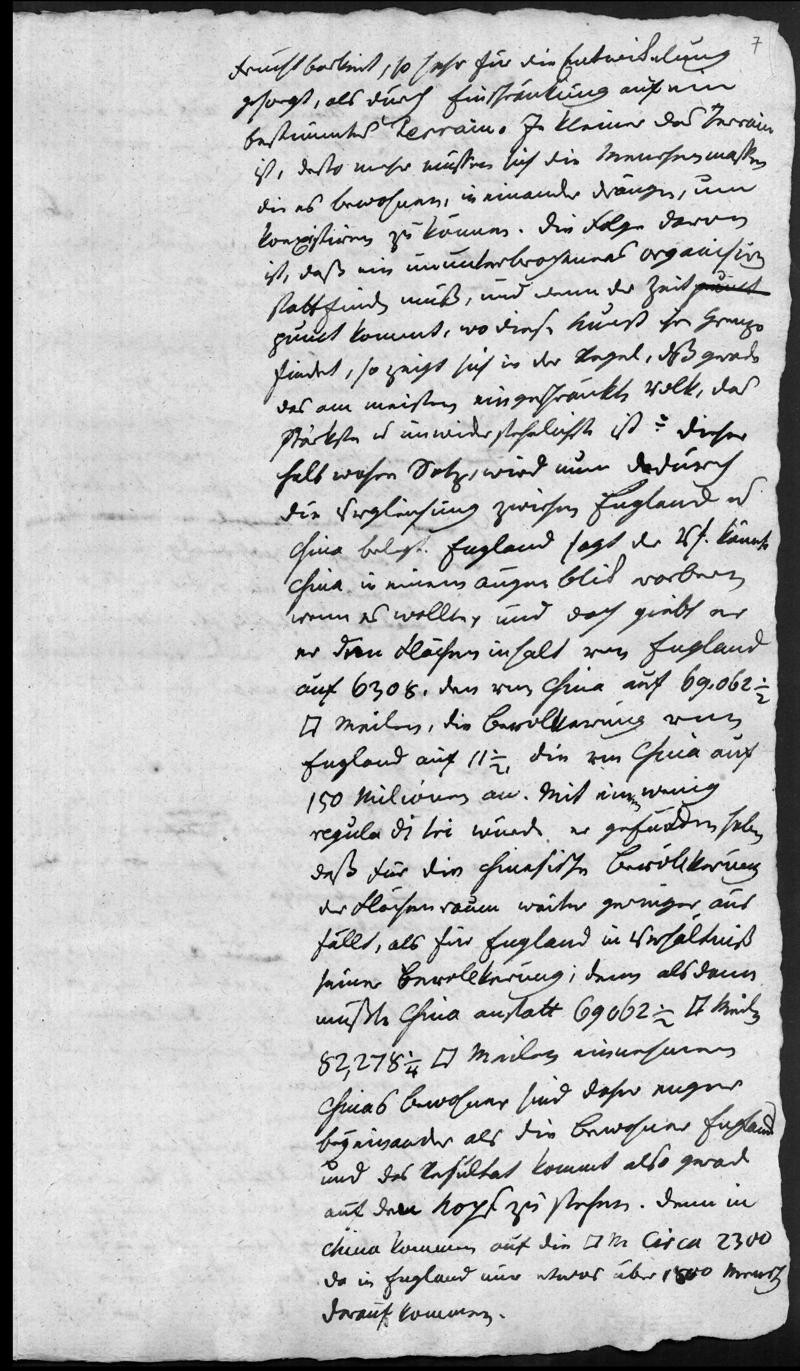 7
fruchtbarkeit, so sehr für die Entwikelung
gesorgt, als durch Einschränkung auf ein
bestimmtes Terrain. Je kleiner das Terrain
ist, desto mehr müssen sich die Menschenmassen
die es bewohnen, in einander drängen, um
koexistiren zu können. Die Folge davon
ist, daß ein ununterbrochenes organisiren
stattfinden muß, und wenn der Zeitpunct
punct kommt, wo diese Kunst ihre Grenze
findet, so zeigt sich in der Regel, daß gerade
das am meisten eingeschränkte Volk, das
stärkste u unwiderstehlichste ist. Dieser
halb wahre Satz, wird nun dadurch
die Vergleichung zwischen England u
China belegt. England sagt der Vf. könnte
China in einem augenblik erobern
wenn es wollte, und doch giebt er
er den Flächeninhalt von England
auf 6308, den von China auf 69,062 1/2
□ Meilen, die Bevölkerung von
England auf 11 1/2, die von China auf
150 Milionen an. Mit ein wenig
regula di tri würde er gefunden haben
daß für die chinesische Bevölkerung
der Flächenraum weiter geringer aus
fällt, als für England in Verhältniß
seiner Bevölkerung; denn alsdann
müßte China anstatt 69062 1/2 □ Meilen
82,278 1/4 □ Meilen einnehmen
Chinas bewohner sind daher enger
beyeinander als die Bewohner Englands
und das Resultat kommt also gerad
auf dem Kopf zu stehen. Denn in
China kommen auf die □ M Circa 2300
da in England nur etwas über 1800 Mensch
darauf kommen.